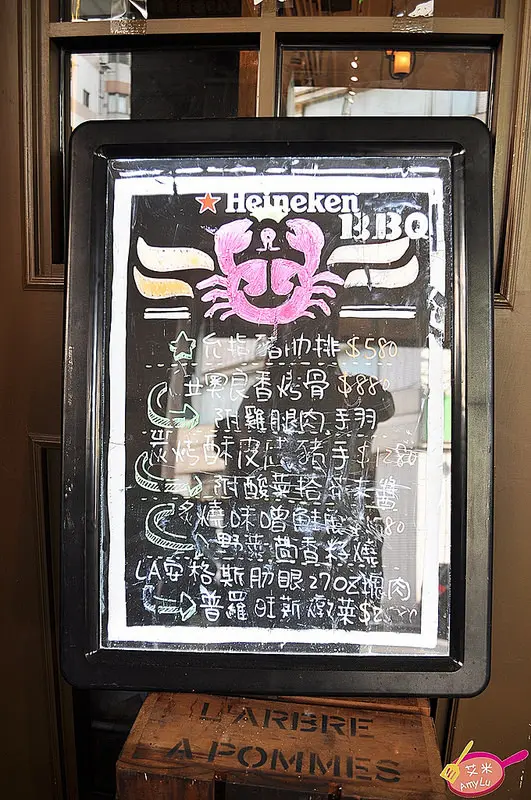 Heineken
BBQ
吮指豬肋排 $580
香烤骨 $880
附雞腿肉.手羽
炭烤酥皮 豬手 $1280
附酸菜搭 醬
炙燒味噌鮭 580
野菜茴香
LA安格斯肋眼 27OZ 肉
普羅旺斯 菜 $2
L'ARBRE
A POMMES
艾米
AmyLu